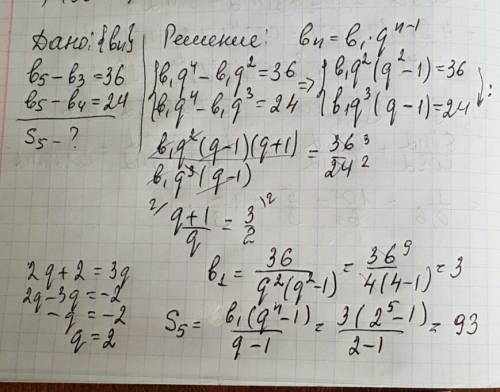 Дано: {bn}
b5 - b3 = 36
b5 - b4 = 24
S5 - ?
Решение: bn = b1 · q^(n-1)
{b1q^4 - b1q^2 = 36 => {b1q^2(q^2 - 1) = 36
{b1q^4 - b1q^3 = 24 {b1q^3(q - 1) = 24 ↓:
b1q^2(q-1)(q+1) / b1q^3(q-1) = 36 3 / 24 2
2/ q+1 / q = 3 /2 / 2
2q + 2 = 3q
2q - 3q = -2
-q = -2
q = 2
b1 = 36 / q^2(q^2-1) = 36 9 / 4(4-1) = 3
S5 = b1(q^n - 1) / q - 1 = 3(2^5 - 1) / 2 - 1 = 93